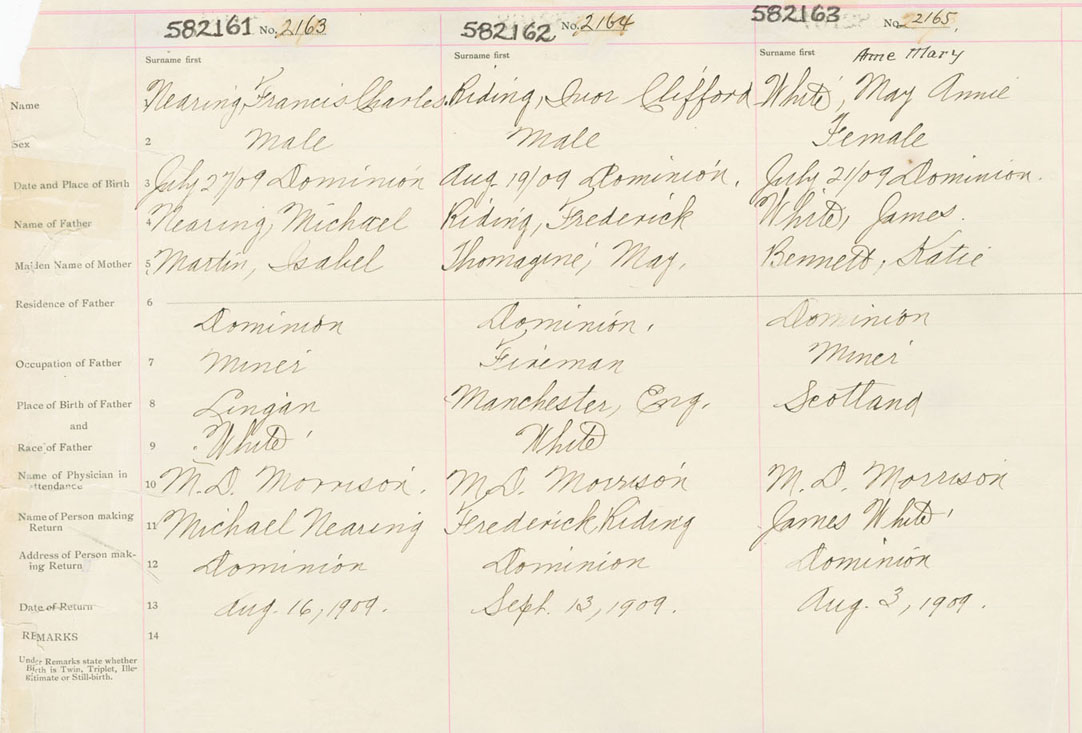 582161 No. 2163 582162 No. 2164 582163 No. 2165
Surname first Surname first Surname first Anne Mary
Name Nearing, Francis Charles Riding, Ivor Clifford White, May Annie
Sex 2 Male Male Female
Date and Place of Birth 3 July 27/09 Dominion Aug. 19/09 Dominion. July 21/09 Dominion.
Name of Father 4 Nearing, Michael Riding, Frederick White, James.
Maiden Name of Mother 5 Martin, Isabel Thomagine, May. Bennett, Katie
Residence of Father 6
Dominion Dominion. Dominion
Occupation of Father 7 Miner Fireman Miner
Place of Birth of Father 8 Lingan Manchester, Eng. Scotland
and
Race of Father 9 White White
Name of Physician in
attendance 10 M.D. Morrison. M.D. Morrison M.D. Morrison
Name of Person making
Return 11 Michael Nearing Frederick Riding James White
Address of Person mak-
ing Return 12 Dominion Dominion Dominion
Date of Return 13 Aug. 16, 1909. Sept. 13, 1909. Aug. 3, 1909.
REMARKS 14
Under Remarks state whether
Birth is Twin, Triplet, Ille-
gitimate or Still-birth.